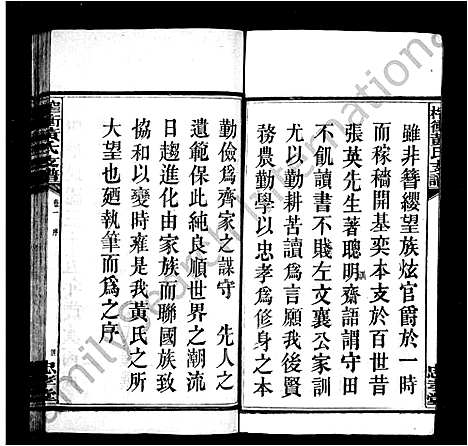 雖非簪纓望族炫官爵於一時
而稼穡開基奕本支於百世昔
張英先生著聰明齋語謂守田
不飢讀書不賤左文襄公家訓
尤以勤耕苦讀爲言願我後賢
務農勤學以忠孝爲修身之本
勤儉爲齊家之謀守 先人之
遺範保此純良順世界之潮流
日趨進化由家族而聯國族致
協和以變時雍是我黃氏之所
大望也廼執筆而爲之序
黃氏支譜
卷一 序
忠孝堂